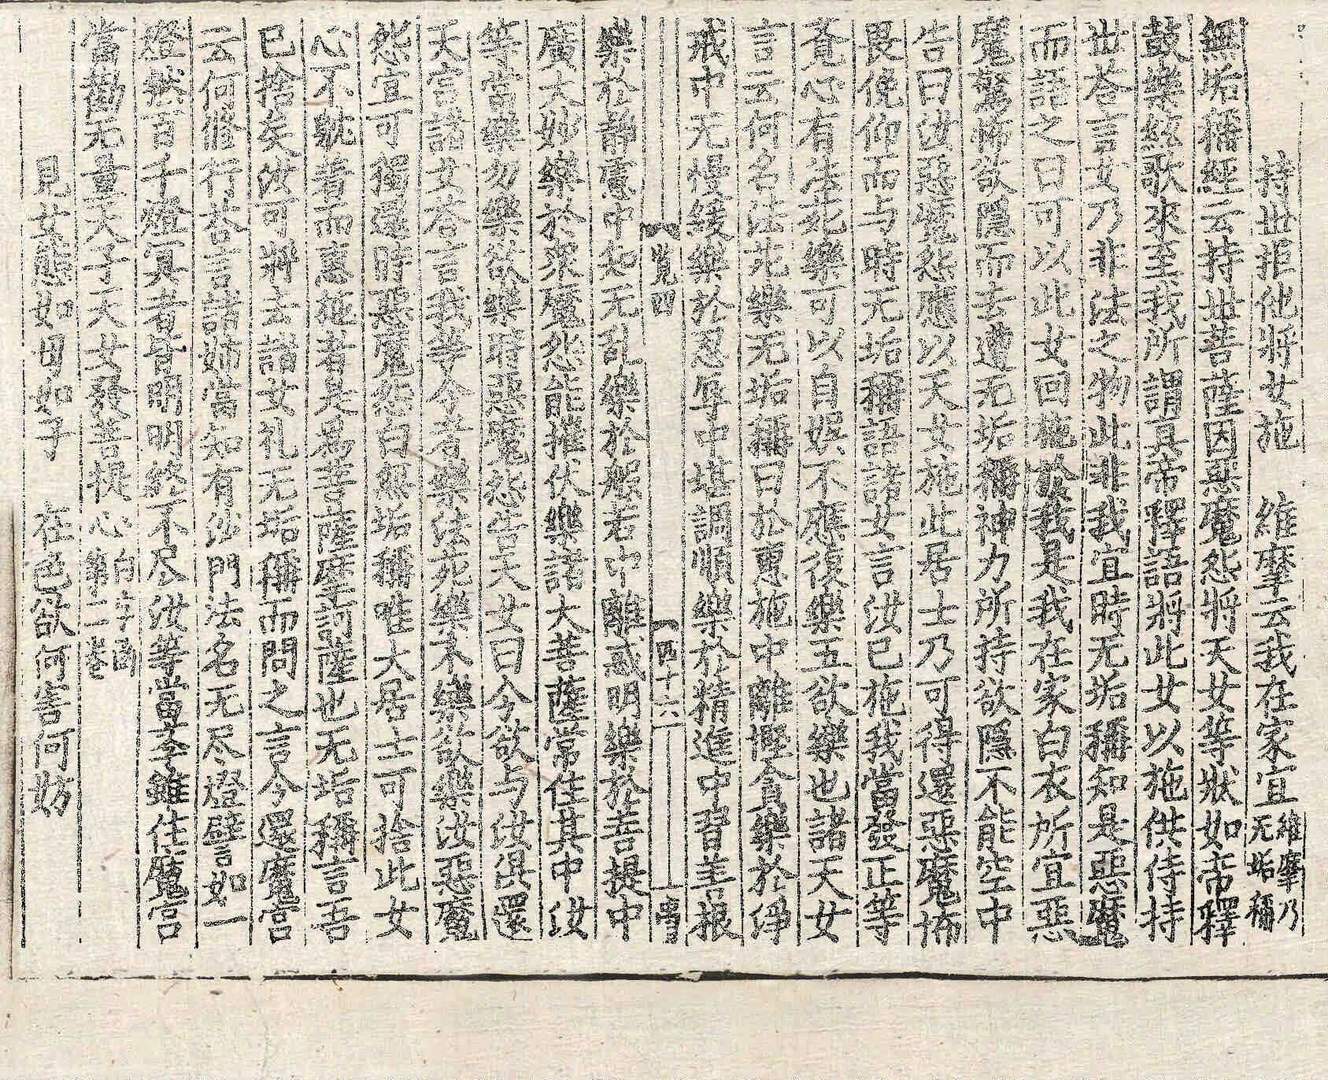 持世拒他將女施　維摩云我在家宜 維摩乃无垢稱
無垢稱經云持世菩薩因惡魔怨將天女等狀如帝釋
鼓樂絃歌來至我所謂眞帝釋語將此女以施供侍持
世荅言女乃非法之物此非我宜時无垢稱知是惡魔
而語之曰可以此女回施於我是我在家白衣所宜惡
魔驚怖欲隱而去遭无垢稱神力所持欲隱不能空中
告曰汝惡魔怨應以天女施此居士乃可得還惡魔怖
畏俛仰而与時无垢稱語諸女言汝已施我當發正等
覺心有法苑樂可以自娱不應復樂五欲樂也諸天女
言云何名法苑樂无垢稱曰於惠施中離慳貪樂於淨
戒中无慢緩樂於忍辱中堪調順樂於精進中習善根
【覽四　【四十六　禹
樂於静慮中知无乱樂於般若中離惑明樂於菩提中
廣大妙樂於衆魔怨能摧伏樂諸大菩薩常住其中汝
等當樂勿樂欲樂時惡魔怨告天女曰今欲与汝俱還
天宫諸女荅言我等今者樂法苑樂不樂欲樂汝惡魔
怨宜可獨還時惡魔怨白無垢稱唯大居士可捨此女
心不躭着而惠施者是爲菩薩摩訶薩也无垢稱言吾
已捨矣汝可將去諸女礼无垢稱而問之言今還魔宫
云何脩行荅言諸姉當知有沙門法名无尽燈譬如一
燈然百千燈冥者皆明明終不尽汝等當學雖住魔宫
當勸无量天子天女發菩提心 白字函第二卷
見女態如母如子　在色欲何害何妨